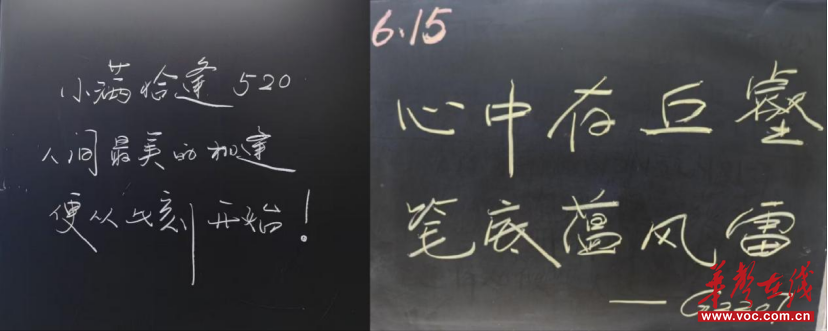 小满恰逢520
人间最美的相逢
便从此刻开始！
6.15
心中存丘壑
笔底蕴风雷
华声在线
www.voc.com.cn